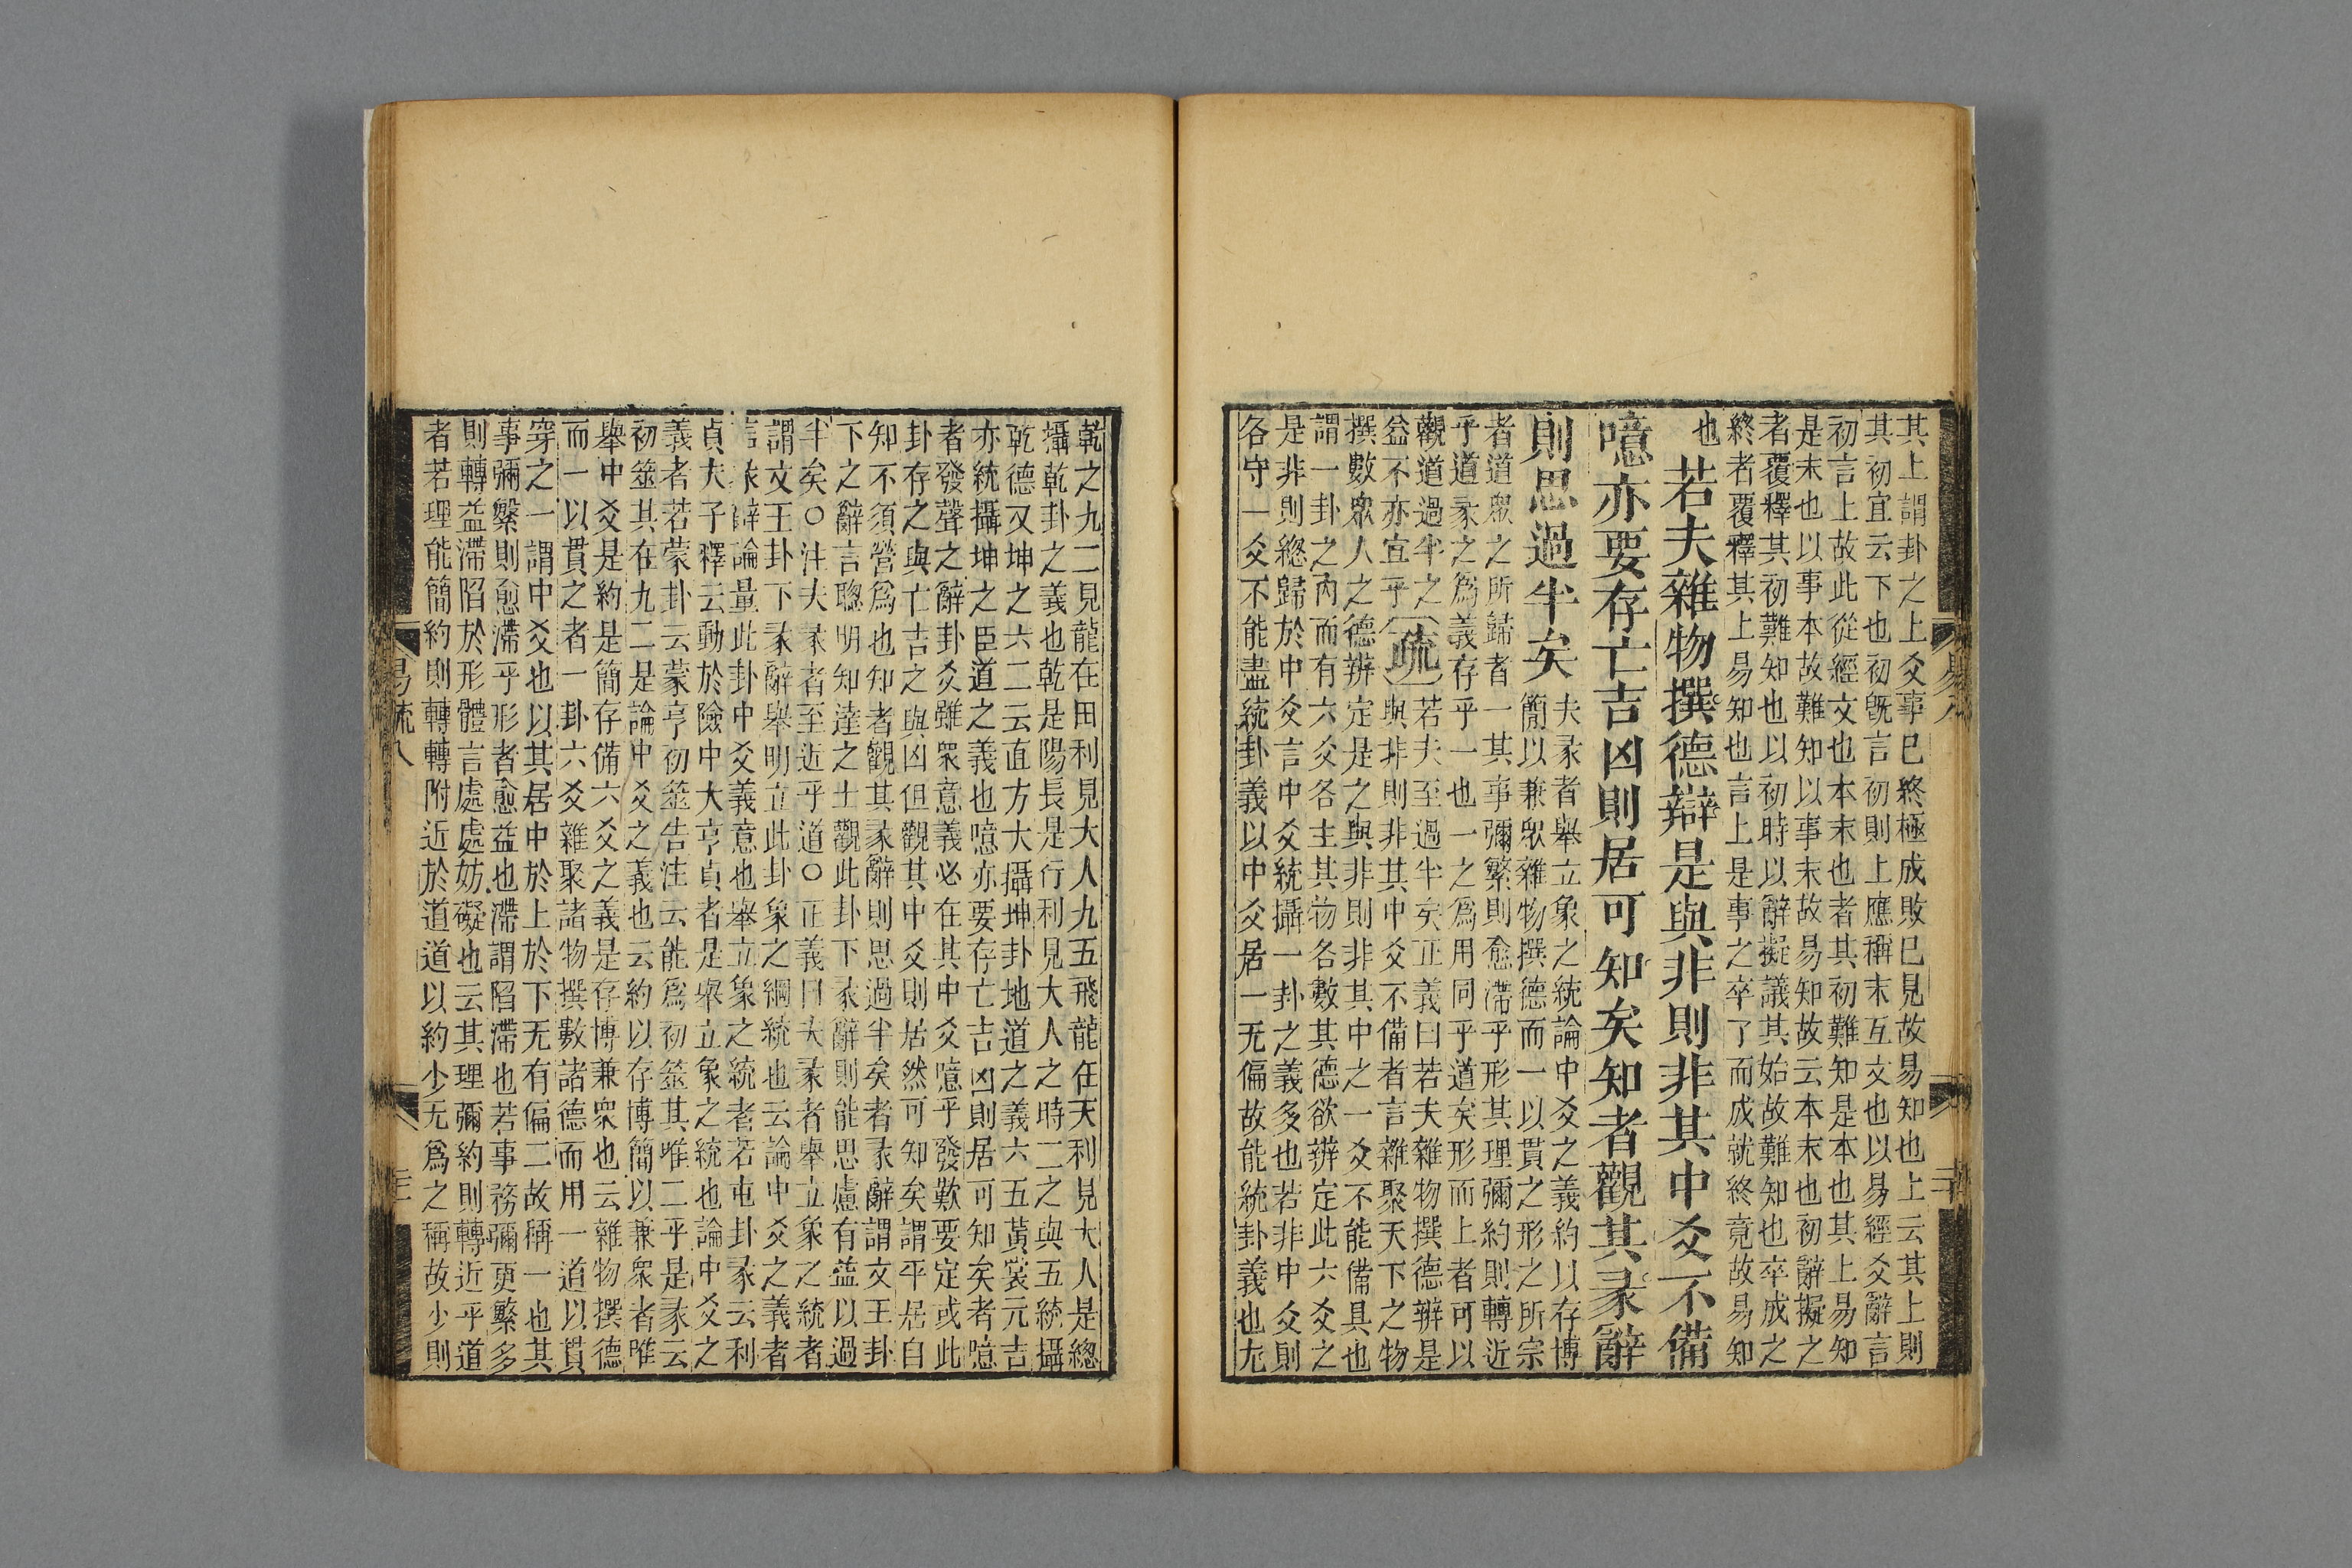 其上謂卦之上爻事已終極成敗已見故易知也上云其上則
其初宜云下也初既言初則上應稱末互文也以易經爻辭言
初言上故此從經文也本末也者其初難知是本也其上易知
是末也以事本故難知以事末故易知故云本末也初辭擬之
者覆釋其初難知也以初時以辭擬議其始故難知也卒成之
終者覆釋其上易知也言上是事之卒了而成就終竟故易知
也
若夫雜物撰德辯是與非則非其中爻不備
噫亦要存亡吉凶則居可知矣知者觀其彖辭
則思過半矣
夫彖者舉立象之統論中爻之義約以存博
簡以兼眾雜物撰德而一以貫之形之所宗
者道眾之所歸者一其事彌繁則愈滯乎形其理彌約則轉近
乎道彖之為義存乎一也一之為用同乎道矣形而上者可以
觀道過半之益不亦宜乎
疏
若夫至過半矣正義曰若夫雜物撰德辨是
與非則非其中爻不備者言雜聚天下之物
撰數眾人之德辨定是之與非則非其中之一爻不能備具也
謂一卦之內而有六爻各主其物各數其德欲辨定此六爻之
是非則緫歸於中爻言中爻統攝一卦之義多也若非中爻則
各守一爻不能盡統卦義以中爻居一无偏故能統卦義也尢
易八
乾之九二見龍在田利見大人九五飛龍在天利見大人是緫
攝乾卦之義也乾是陽長是行利見大人之時二之與五統攝
乾德又坤之六二云直方大攝坤卦地道之義六五黃裳元吉
亦統攝坤之臣道之義也噫亦要存亡吉凶則居可知矣者噫
者發聲之辭卦爻雖眾意義必在其中爻噫乎發歎要定或此
卦存之與亡吉之與凶但觀其中爻則居然可知矣謂平居自
知不須營為也知者觀其彖辭則思過半矣者彖辭謂文王卦
下之辭言聦明知達之士觀此卦下彖辭則能思慮有益以過
半矣○注夫彖者至近乎道○正義曰夫彖者舉立象之統者
謂文王卦下彖辭舉明立此卦象之綱統也云論中爻之義者
言彖辭論量此卦中爻義意也舉立象之統者若屯卦彖云利
貞夫子釋云動於險中大亨貞者是舉立象之統也論中爻之
義者若蒙卦云蒙亨初筮告注云能為初筮其唯二乎是彖云
初筮其在九二是論中爻之義也云約以存博簡以兼眾者唯
舉中爻是約是簡存備六爻之義是存博兼衆也云雜物撰德
而一以貫之者一卦六爻雜聚諸物撰數諸德而用一道以貫
穿之一謂中爻也以其居中於上於下无有偏二故稱一也其
事彌繁則愈滯乎形者愈益也滯謂陷滯也若事務彌更繁多
則轉益滯陷於形體言處處妨礙也云其理彌約則轉近乎道
者若理能簡約則轉轉附近於道道以約少无為之稱故少則
易疏八